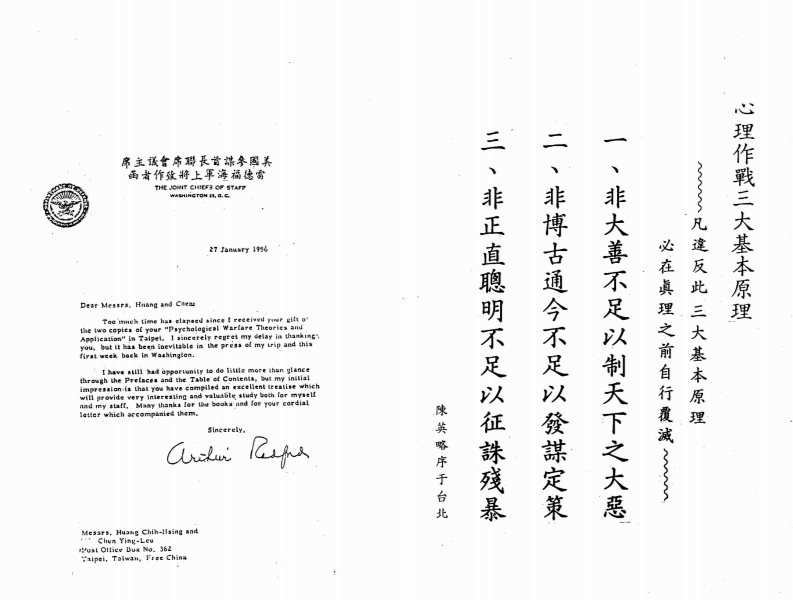 心理作戰三大基本原理
凡違反此三大基本原理
必在眞理之前自行覆滅
一、非大善不足以制天下之大惡
二、非博古通今不足以發謀定策
三、非正直聰明不足以征誅殘暴
陳英略序于台北
美國參謀首長聯席會議主席
雷德福海軍上將致作者函
THE JOINT CHIEFS OF STAFF
WASHINGTON 25, D. C.
27 January 1956
Dear Messrs. Huang and Chen:
Too much time has elapsed since I received your gift of
the two copies of your "Psychological Warfare Theories and
Application" in Taipei. I sincerely regret my delay in thanking
you, but it has been inevitable in the press of my trip and this
first week back in Washington.
I have still had opportunity to do little more than glance
through the Prefaces and the Table of Contents, but my initial
impression is that you have compiled an excellent treatise which
will provide very interesting and valuable study both for myself
and my staff. Many thanks for the books and for your cordial
letter which accompanied them.
Sincerely,
Arthur Radford
Messrs. Huang Chih-Hsing and
Chen Ying-Leu
Post Office Box No. 362
Taipei, Taiwan, Free China